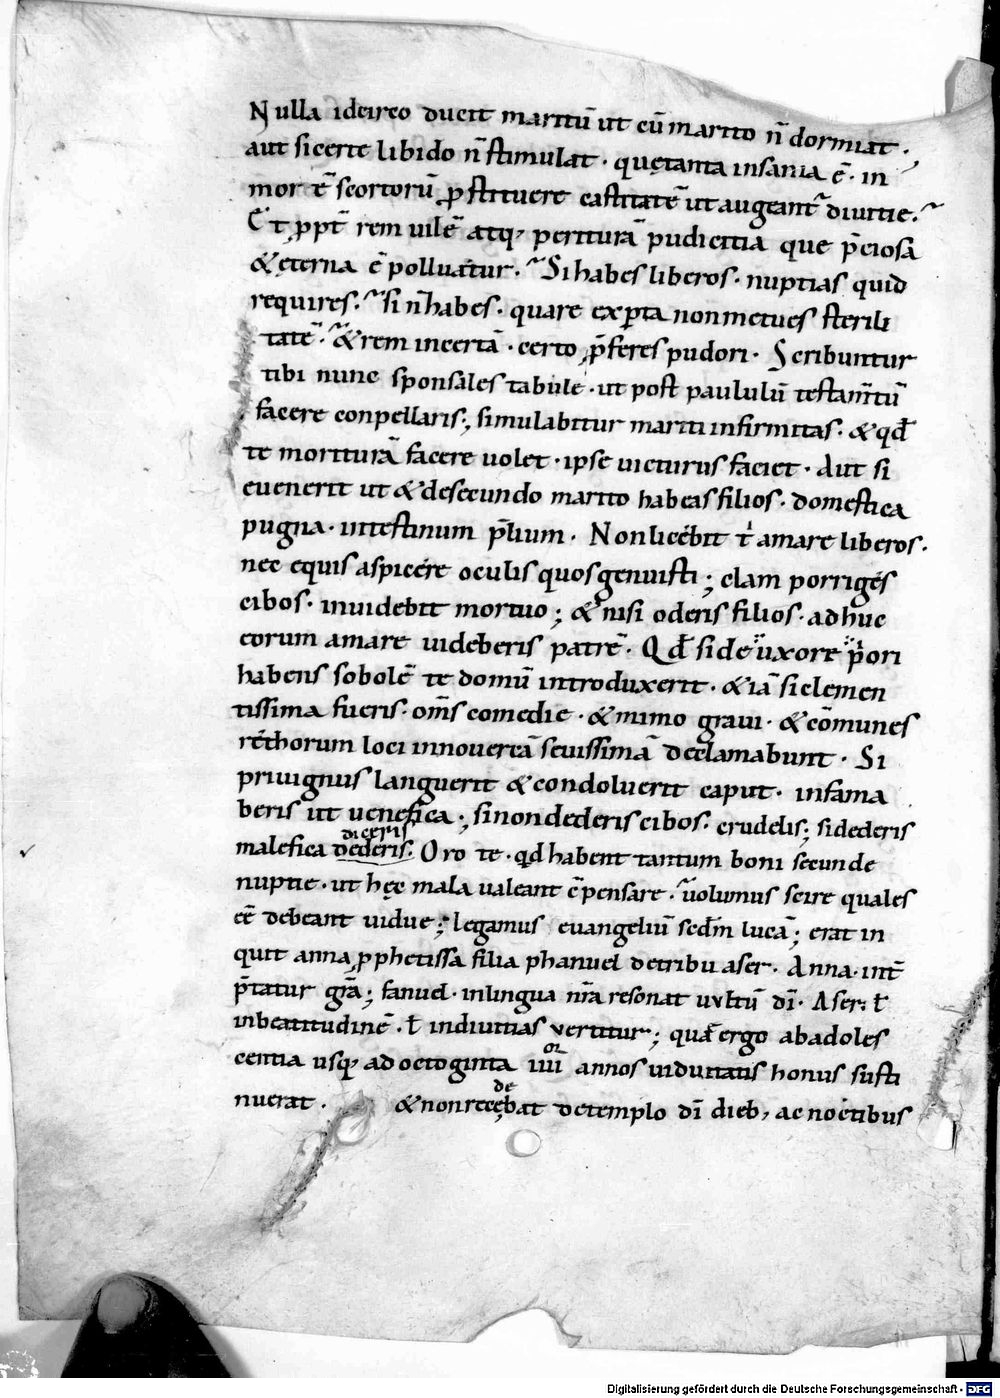 Nulla idcirco ducit maritū ut cū marito n̄ dormiat .
aut si certe libido n̄ stimulat · quę tanta insania ē · in
morē scortorū ꝓstituere castitatē ut augeant᷑ diuitie .
Et ꝓpt̄ rem uilē atq; periturā pudicitia que p̄ciosa
& ęterna ē polluatur . Si habes liberos · nuptias quid
requires . si n̄ habes · quare experta non metues sterili
tatē . & rem incertā · certo p̄feres pudori · Scribuntur
tibi nunc sponsales tabule · ut post paululū testam̄tū
facere conpellaris ; simulabitur mariti infirmitas · & qđ
te moriturā facere uolet · ipse uicturus faciet · Aut si
euenerit ut & de secundo marito habeas filios · domestica
pugna · intestinum p̄lium · Non licebit t͛ amare liberos ·
nec equis aspicere oculis quos genuisti ; clam porriges
cibos · inuidebit mortuo ; & nisi oderis filios · ad huc
eorum amare uideberis patrē · Qđ si de uxore p̄ori
habens sobolē te domū introduxerit · & iā si clemen
tissima fueris · om̄s comedie · & mimo graui · & cōmunes
rethorum loci in nouercā seuissimā declamabunt · Si
priuignus languerit & condoluerit caput · infama
beris ut uenefica ; si non dederis cibos · crudelis ; si dederis
diceris
malefica dederis . Oro te · qđ habent tantum boni secunde
nuptie · ut hęc mala ualeant cp̄ensare · uolumus scire quales
eē debeant uidue ; legamus euangeliū scđm lucā ; erat in
quit anna ꝓphetissa filia phanuel de tribu aser · Anna · int̄
p̄tatur grā ; fanuel · in lingua nr̄a resonat uultū dī · Aser · ł
in beatitudinē · ł in diuitias uertitur ; quā ergo ab adoles
centia usq; ad octoginta iiii or annos uiduitatis honus susti
nuerat . & non recedebat de templo dī dieb; ac noctibus
Digitalisierung gefördert durch die Deutsche Forschungsgemeinschaft - DFG